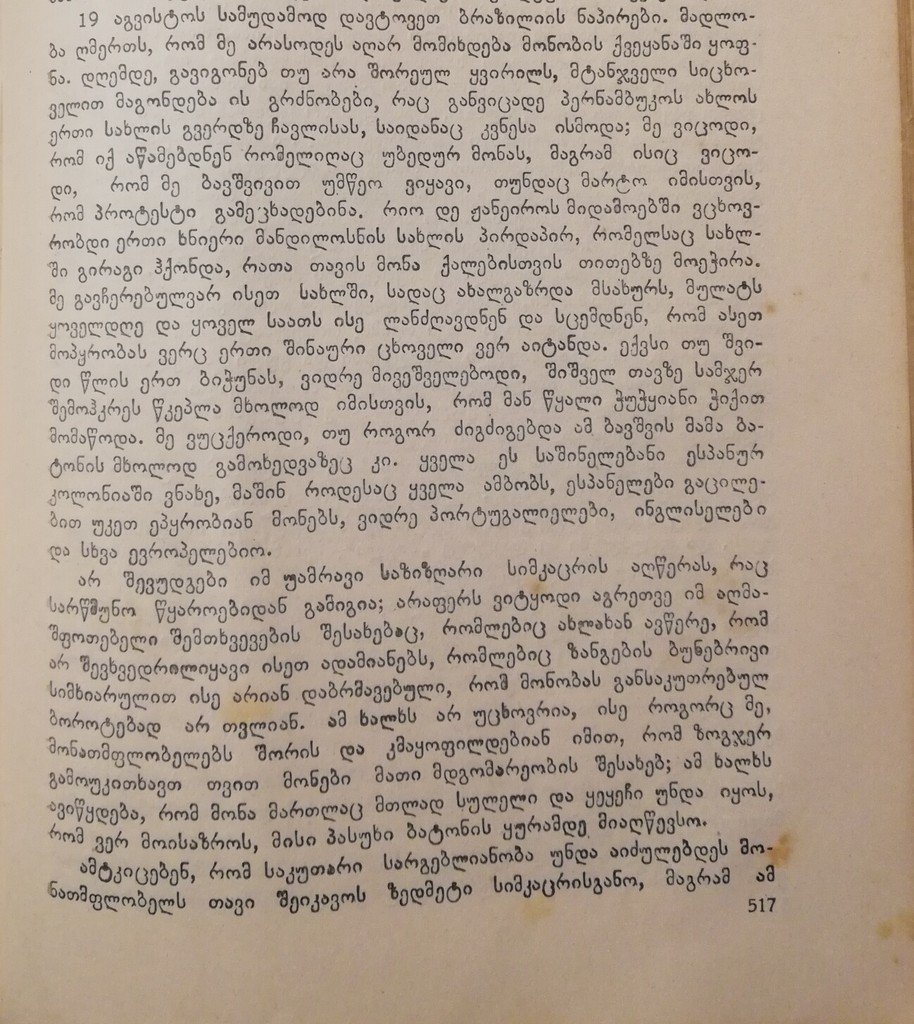 19 აგვისტოს სამუდამოდ დავტოვეთ ბრაზილიის ნაპირები. მადლო-
ბა ღმერთს, რომ მე არასოდეს აღარ მომიხდება მონობის ქვეყანაში ყოფ-
ნა. დღემდე, გავიგონებ თუ არა შორეულ ყვირილს, მტანჯველი სიცხო-
ველით მაგონდება ის გრძნობები, რაც განვიცადე პერნამბუკოს ახლოს
ერთი სახლის გვერდზე ჩავლისას, საიდანაც კვნესა ისმოდა; მე ვიცოდი,
რომ იქ აწამებდნენ რომელიღაც უბედურ მონას, მაგრამ ისიც ვიცო-
დი, რომ მე ბავშვივით უმწეო ვიყავი, თუნდაც მარტო იმისთვის,
რომ პროტესტი გამეცხადებინა. რიო დე ჟანეიროს მიდამოებში ვცხოვ-
რობდი ერთი ხნიერი მანდილოსნის სახლის პირდაპირ, რომელსაც სახლ-
ში გირაგი ჰქონდა, რათა თავის მონა ქალებისთვის თითებზე მოეჭირა.
მე გავჩერებულვარ ისეთ სახლში, სადაც ახალგაზრდა მსახურს, მულატს
ყოველდღე და ყოველ საათს ისე ლანძღავდნენ და სცემდნენ, რომ ასეთ
მოპყრობას ვერც ერთი შინაური ცხოველი ვერ აიტანდა. ექვსი თუ შვი-
დი წლის ერთ ბიჭუნას, ვიდრე მივეშველებოდი, შიშველ თავზე სამჯერ
შემოჰკრეს წკეპლა მხოლოდ იმისთვის, რომ მან წყალი ჭუჭყიანი ჭიქით
მომაწოდა. მე ვუცქეროდი, თუ როგორ ძიგძიგებდა ამ ბავშვის მამა ბა-
ტონის მხოლოდ გამოხედვაზეც კი. ყველა ეს საშინელებანი ესპანურ
კოლონიაში ვნახე, მაშინ როდესაც ყველა ამბობს, ესპანელები გაცილე-
ბით უკეთ ეპყრობიან მონებს, ვიდრე პორტუგალიელები, ინგლისელები
და სხვა ევროპელებიო.
არ შევუდგები იმ უამრავი საზიზღარი სიმკაცრის აღწერას, რაც
სარწმუნო წყაროებიდან გამიგია; არაფერს ვიტყოდი აგრეთვე იმ აღმა-
შფოთებელი შემთხვევების შესახებაც, რომლებიც ახლახან ავწერე, რომ
არ შევხვედრილიყავი ისეთ ადამიანებს, რომლებიც ზანგების ბუნებრივი
სიმხიარულით ისე არიან დაბრმავებული, რომ მონობას განსაკუთრებულ
ბოროტებად არ თვლიან. ამ ხალხს არ უცხოვრია, ისე როგორც მე,
მონათმფლობელებს შორის და კმაყოფილდებიან იმით, რომ ზოგჯერ
გამოუკითხავთ თვით მონები მათი მდგომარეობის შესახებ; ამ ხალხს
ავიწყდება, რომ მონა მართლაც მთლად სულელი და ყეყეჩი უნდა იყოს,
რომ ვერ მოისაზროს, მისი პასუხი ბატონის ყურამდე მიაღწევსო.
ამტკიცებენ, რომ საკუთარი სარგებლიანობა უნდა აიძულებდეს მო-
ნათმფლობელს თავი შეიკავოს ზედმეტი სიმკაცრისგანო, მაგრამ ამ
517